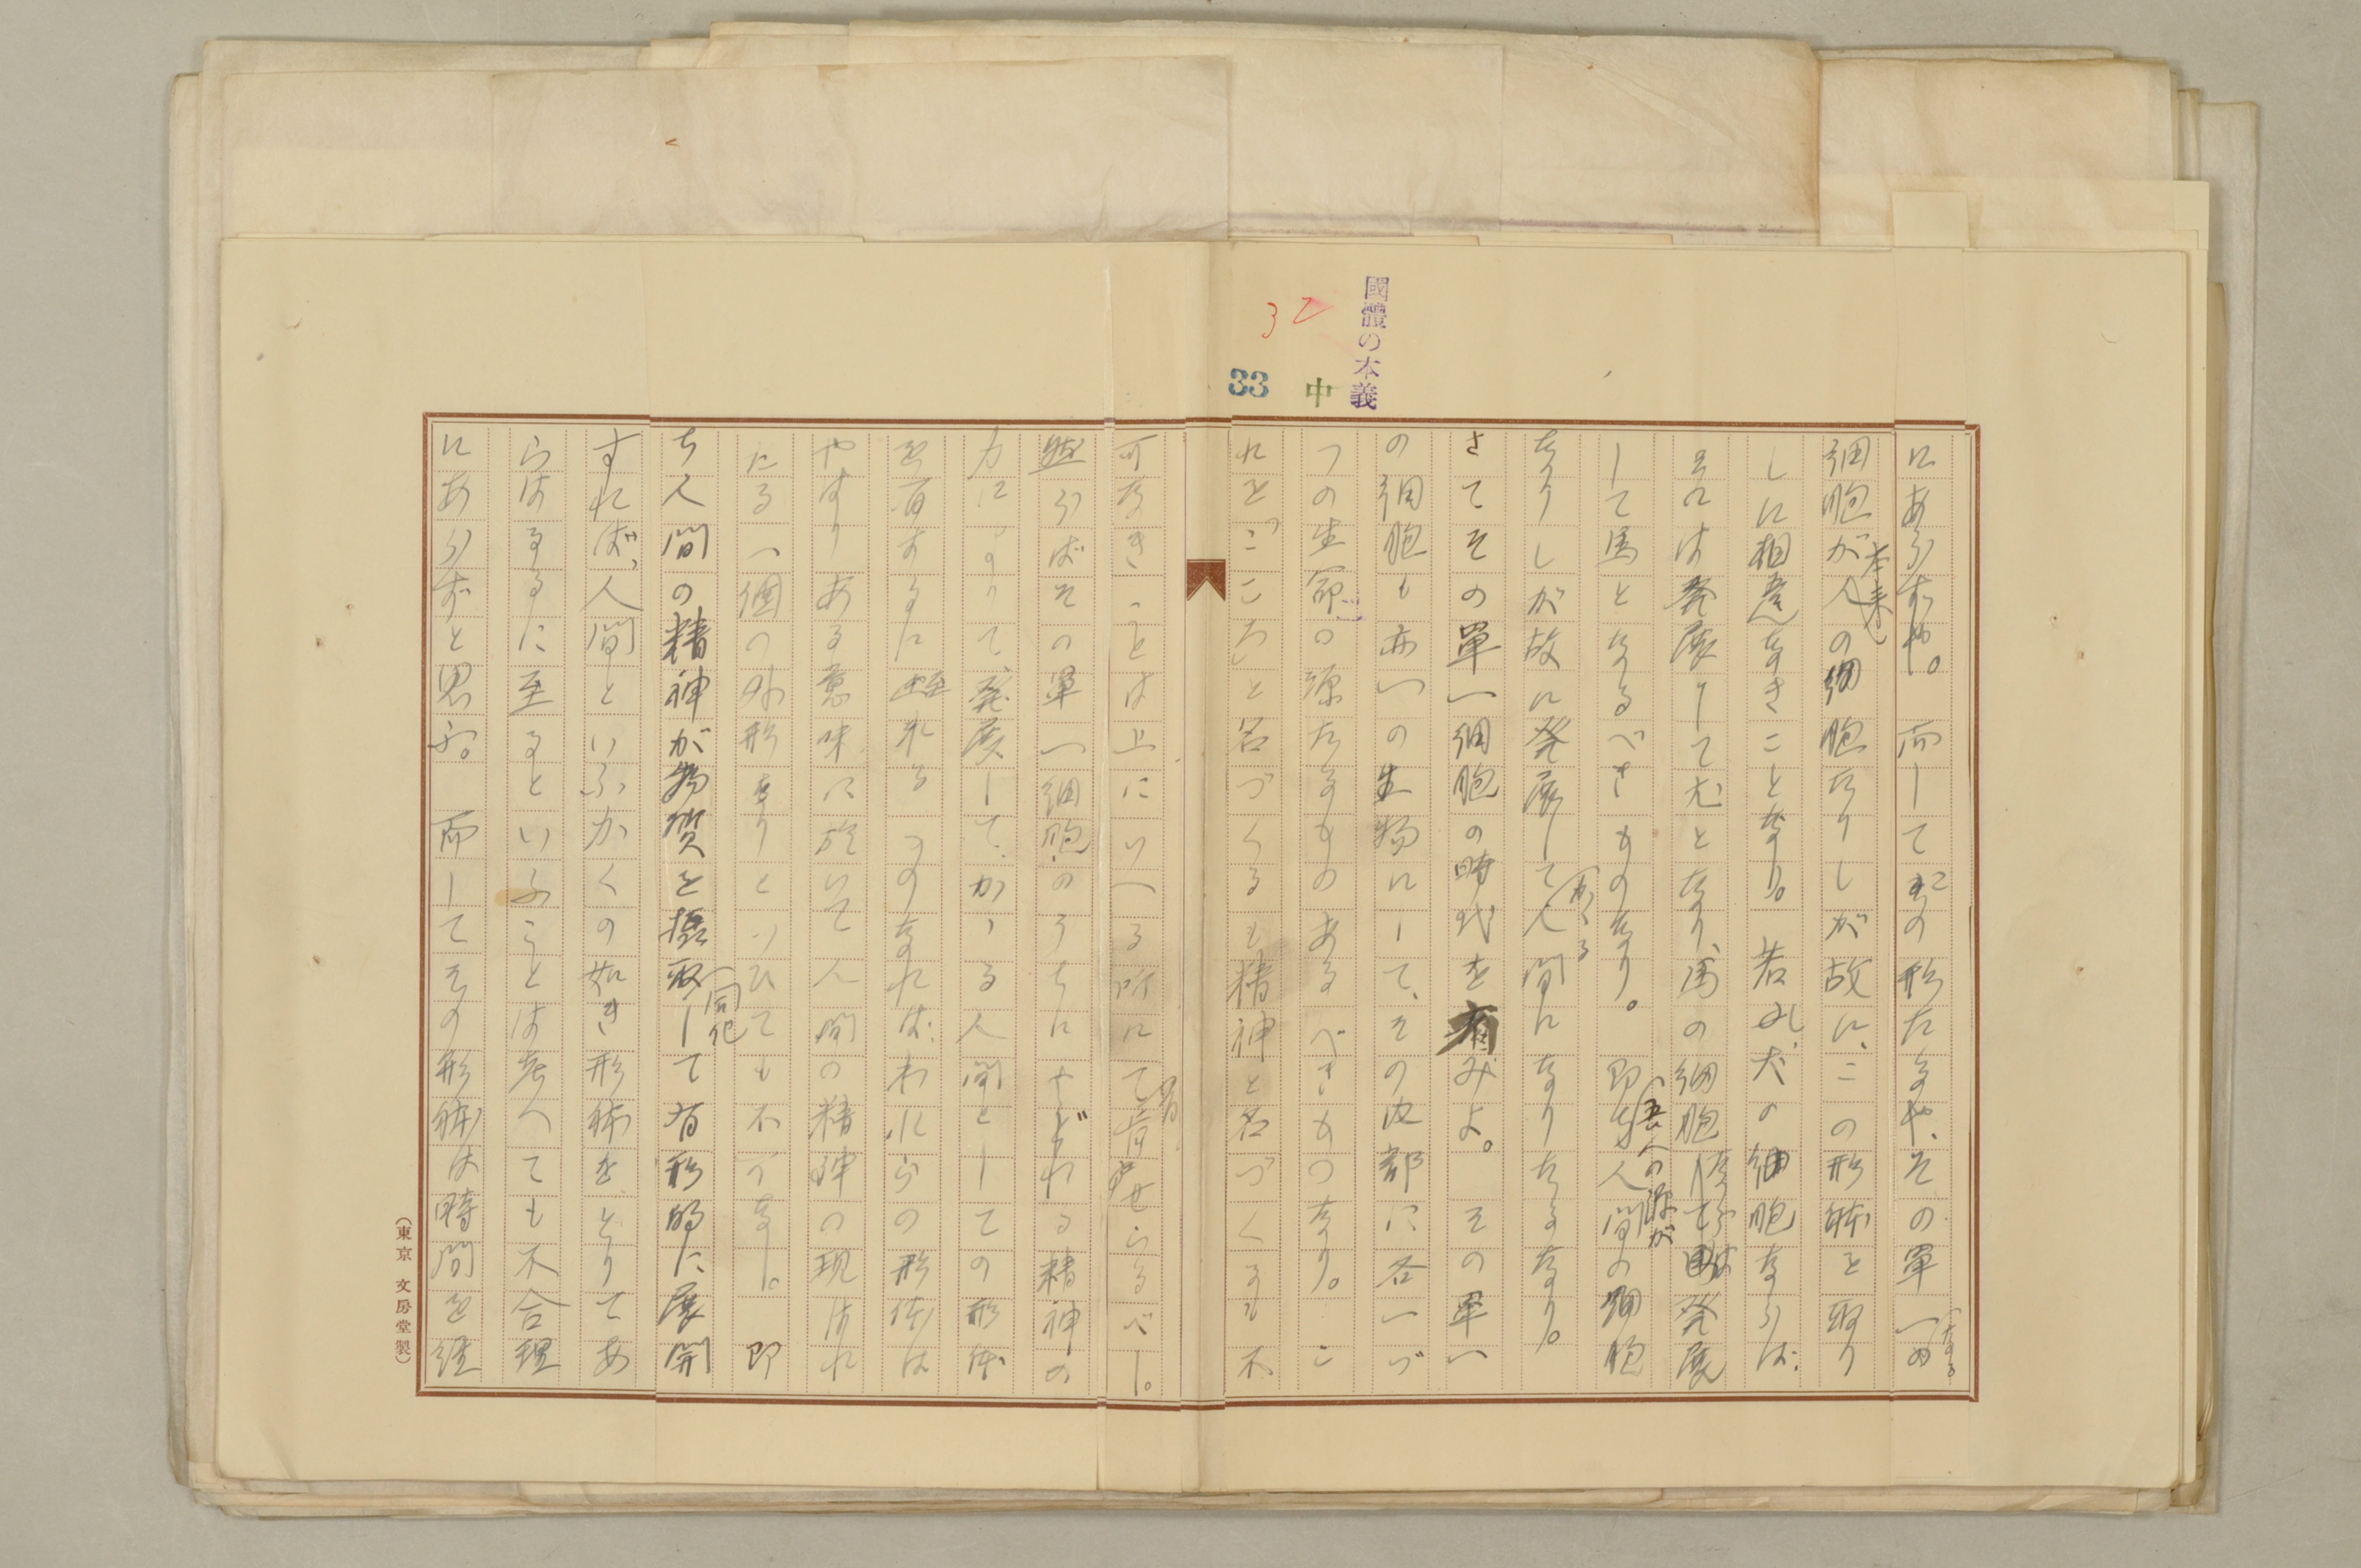 國體の本義
中
33
32
にあらずや。而してこの形たるや、その單一の
（なる
細胞が人の細胞なりしが故に、この形体を取り
本来
しに相違なきことなり。若し、犬の細胞ならば、
それは発展して犬となり、馬の細胞は発展
して馬となるべきものなり。即ち人間の細胞
（吾人の源が
なりしが故に発展して人間になりたるなり。
（斯る
さてその單一細胞の時代を顧みよ。その單一
の細胞も亦一の生物にして、その内部に各一づ
つの生命の源たるものあるべきものなり。こ
れをこころと名づくるも精神と名づくるも不
可なきことは上にいへる所にて肯せらるべし。
然らばその單一細胞のうちにやどれる精神の
力によりて、発展して、かゝる人間としての形体
を有するに至れるものなれば、われらの形体は
やはりある意味に於いて人間の精神の現はれ
たる一個の外形なりといひても不可なし。即
ち人間の精神が物質を摂取して有形的に展開
（同化
すれば、人間といふかくの如き形体をとりてあ
らはるるに至るといふことは考へても不合理
にあらずと思ふ。而してその形体は時間を経
（東京 文房堂製）